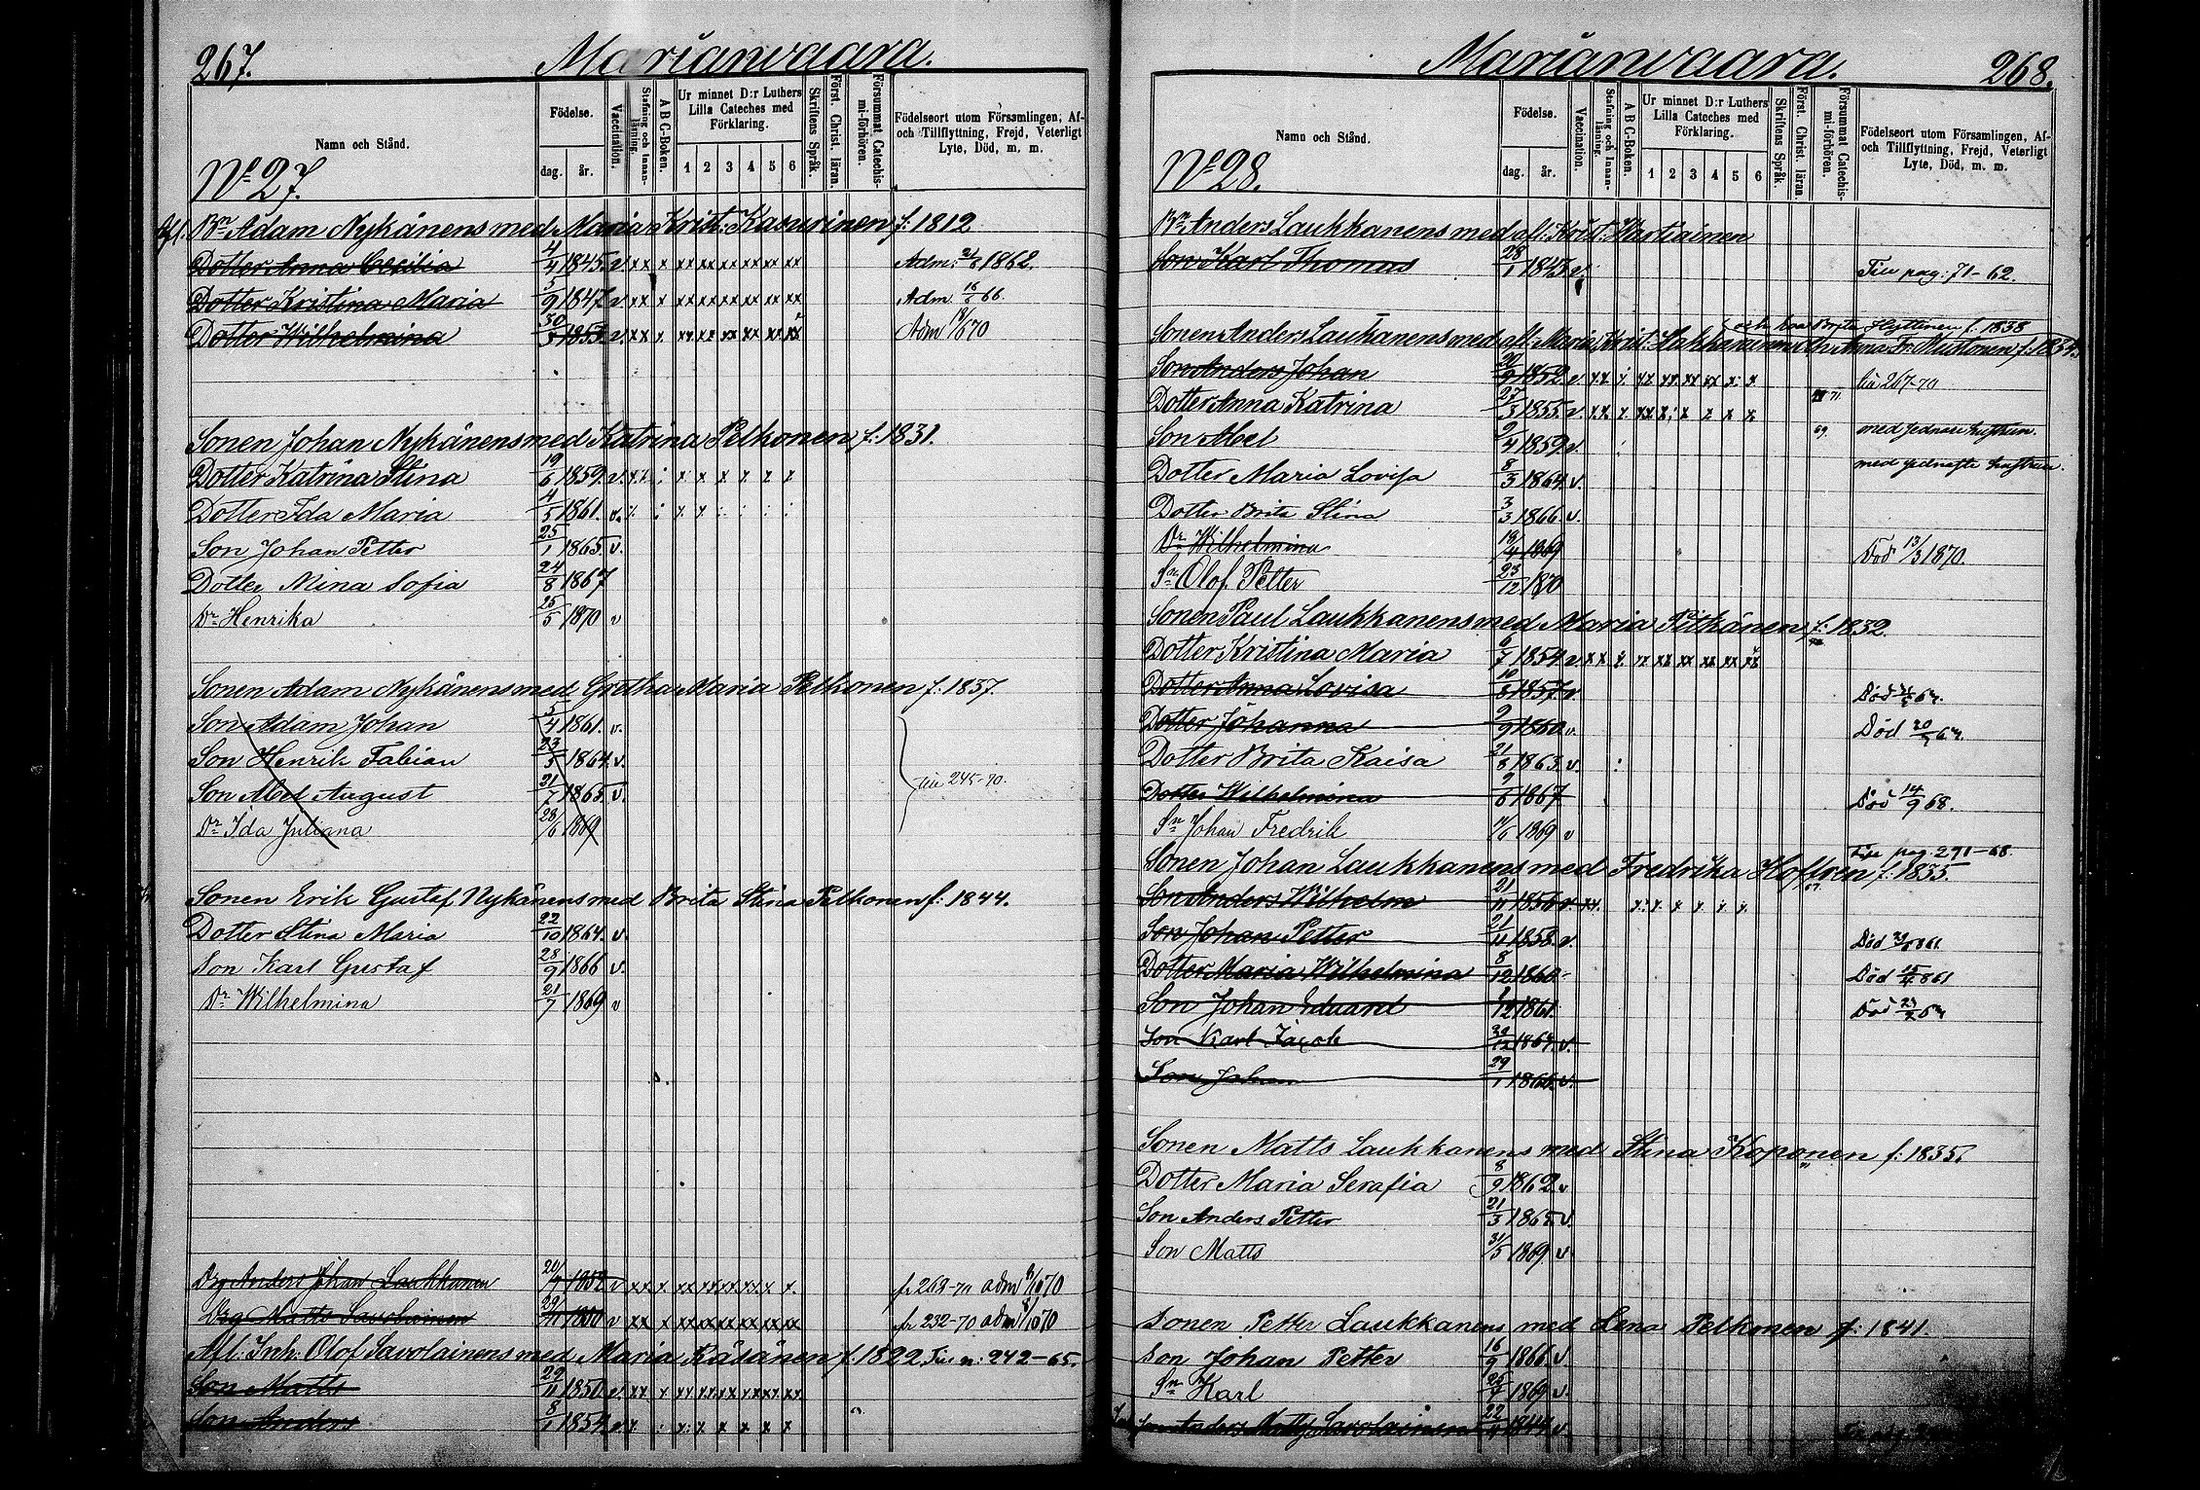 267.
Marianvaara.
Namn och Stånd.
Födelse.
dag.
år.
Vaccination.
Stafning och Innanläsning.
A B C-Boken.
Ur minnet D:r Luthers Lilla Cateches med Förklaring.
1 2 3 4 5 6
Skriftens Språk.
Först. Christ. läran.
Försummat Catechismi-förhören.
Födelseort utom Församlingen, Af- och Tillflyttning, Frejd, Veterligt Lyte, Död, m. m.
No 27.
Bn Adam Nykänens med Maria Krist: Kasurinen f: 1812
Dotter Anna Cecilia 4/4 1845. v. Adm: 1862.
Dotter Kristina Maria 5/9 1847 v. Adm. 66.
Dotter Wilhelmina 30 1853 v. Adm 70
Sonen Johan Nykänens med Katrina Pelkonen f: 1831.
Dotter Katrina Stina 19/6 1859. v.
Dotter Ida Maria 4/5 1861. v.
Son Johan Petter 25/1 1865 v.
Dotter Mina Sofia 24/8 1867
Dr Henrika 25/5 1870 v
Sonen Adam Nykänens med Gretha Maria Pelkonen f: 1837.
Son Adam Johan 5/4 1861. v.
Son Henrik Fabian 23/3 1864. v.
Son Abel August 21/7 1865 v. 245-70.
Dr Ida Juliana 28/6 1869
Sonen Erik Gustaf Nykänens med Brita Stina Pelkonen f: 1844.
Dotter Stina Maria 22/10 1864. v.
Son Karl Gustaf 28/9 1866 v.
Dr Wilhelmina 21/7 1869 v
Drg Anders Johan Laukkanen 20/9 1852 v f. 268-70 adm 70
Drg Matts Savolainen 29/11 1850 v fr. 232-70 adm 70
Afl: Inh: Olof Savolainens med Maria Räsänen f. 1822. 242-65.
Son Matts 29/11 1850. v.
Son Anders 8/1 1854. v.
Marianvaara.
268.
Namn och Stånd.
Födelse.
dag.
år.
Vaccination.
Stafning och Innanläsning.
A B C-Boken.
Ur minnet D:r Luthers Lilla Cateches med Förklaring.
1 2 3 4 5 6
Skriftens Språk.
Först. Christ. läran
Försummat Catechismi-förhören.
Födelseort utom Församlingen, Af- och Tillflyttning, Frejd, Veterligt Lyte, Död, m. m.
No 28.
Bn Anders Laukkanens med afl: Krist: Martiainen
Son Karl Thomas 28/1 1843 v. Till pag: 71-62.
Brita Hyttinen f. 1838
Sonen Anders Laukanens med afl. Maria Krist: Anna Fr: Mustonen f: 1834
Son Anders Johan 20/9 1852 v. 267-70
Dotter Anna Katrina 27/3 1855. v.
Son Abel 2/4 1859 v. 69.
Dotter Maria Lovisa 8/3 1864. v.
Dotter Brita Stina 3/3 1866. v.
Dr Wilhelmina 1869 Död 13/3 1870.
Sn Olof Petter 23/12 1870
Sonen Paul Laukkanens med Maria Pitkänen f: 1832.
Dotter Kristina Maria 6/7 1854 v.
Dotter Anna Lovisa 10/8 1857 v. Död
Dotter Johanna 2/9 1860 v. Död
Dotter Brita Kaisa 21/8 1863. v.
Dotter Wilhelmina 9/6 1867 Död 14/9 68.
Sn Johan Fredrik 1869 v
pag: 291-68.
Sonen Johan Laukkanens med Fredrika Hoffren f: 1835.
Son Anders Wilhelm 21/11 1856 v.
Son Johan Petter 21/11 1858. v. Död 861
Dotter Maria Wilhelmina 8/12 1860 Död 861
Son Johan Eduard 12 1861. Död
Son Karl Jacob 12 1864. v.
Son Johan 29/1 1866. v.
Sonen Matts Laukkanens med Stina Koponen f: 1835.
Dotter Maria Serafia 8/9 1862 v
Son Anders Petter 21/3 1865. v.
Son Matts 31/5 1869. v.
Sonen Petter Laukkanens med Lena Pelkonen f: 1841.
Son Johan Petter 16/9 1866. v.
Sn Karl 25/7 1869 v.
Anders Savolainen 22 1844 v.